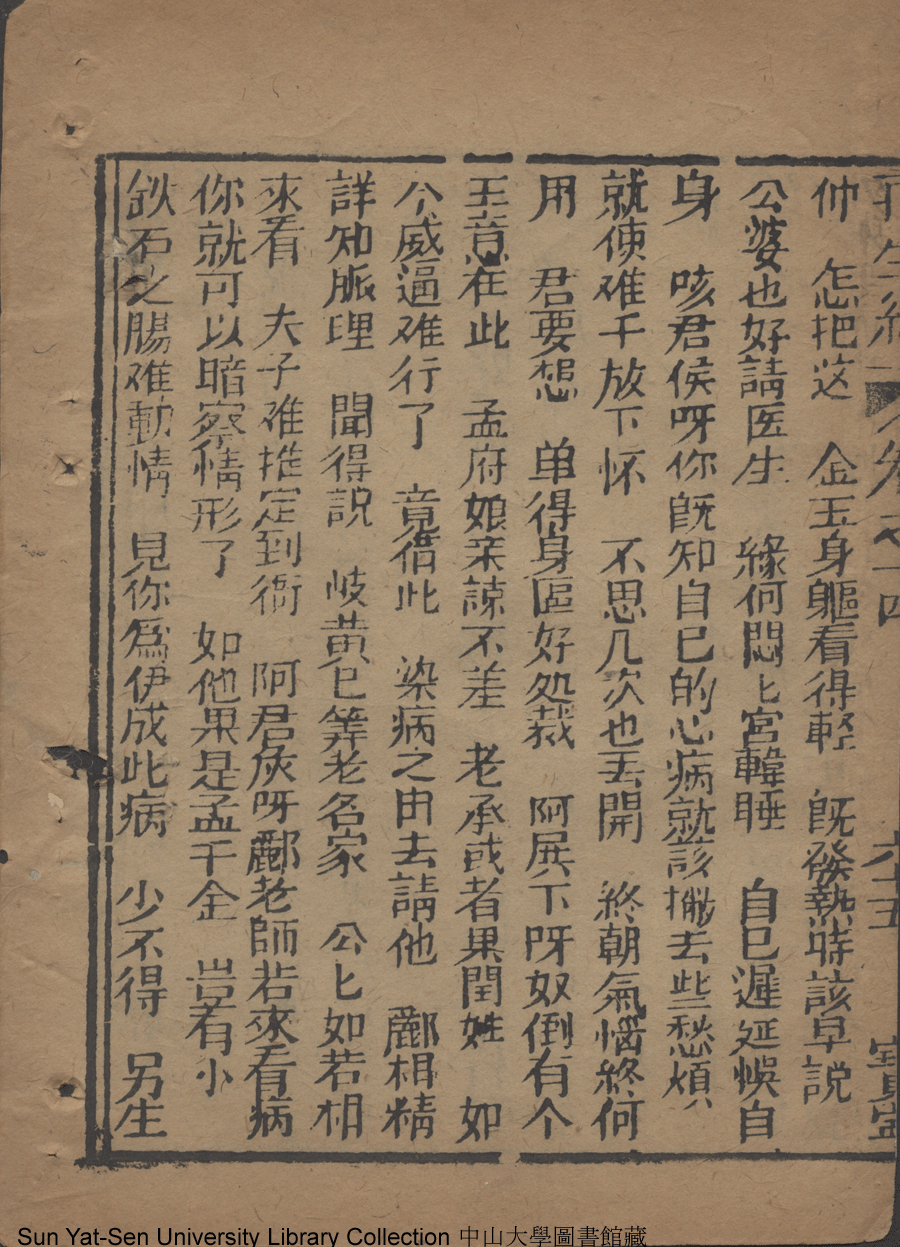 再生緣 卷之十四 六十五 寶寧
仲 怎把这 金玉身軀看得輕 旣發熱時該早說
公婆也好請医生 緣何悶匕宮韓睡 自已遲延悞自
身 咳君侯呀你旣知自已的心病就該撇去些愁煩
就使难千放下怀 不思几次也丟開 終朝氣惱終何
用 君要想 单得身區好処裁 阿屐下呀奴倒有个
王意在此 孟府娘亲諒不差 老承或者果閏姓 如
今威逼难行了 竟借此 染病之由去請他 酈相精
詳知脈理 聞得説 岐黄已筭老名家 公匕如若相
來看 夫子难推定到衙 阿君灰呀酈老師若來看病
你就可以暗察情形了 如他果是孟千金 岂有小
鉄石之腸难動情 見你爲伊成此病 少不得 另生
Sun Yat-Sen University Library Collection 中山大學圖書館藏